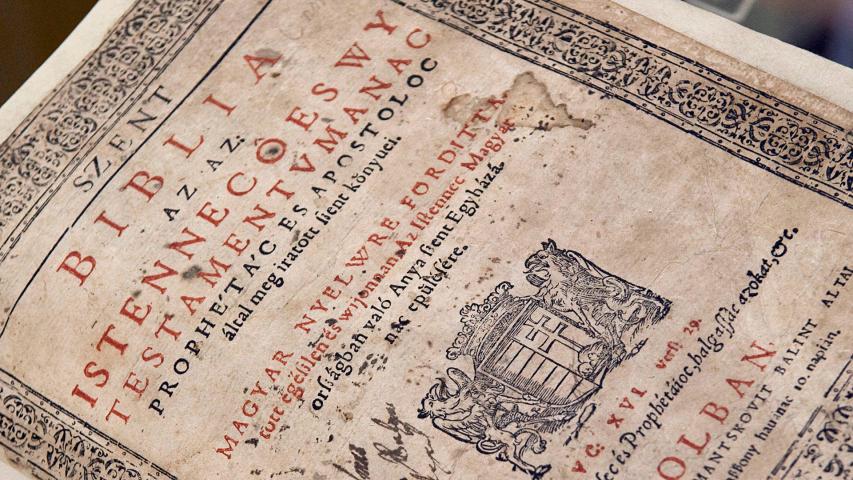 SZENT
BIBLIA
AZ AZ:
ISTENNEC Ó ES WY
TESTAMENTVMANAC
PROPHÉTÁC ES APOSTOLOC
által meg iratott ſzent könyuei.
MAGYAR NYELWRE FORDITTA
tott egéſſlen és wijonnan Az Iſtennec Magyar
orſſágban való Anya ſzent Egyházá
nac epüléſére.
VC. XVI verſ: 29.
éc és Prophétáioc, halgaſſác azokat, &c.
OLBAN,
MANTSKOVIT BALINT ALTAL
aſſony hauánac 10. napián.